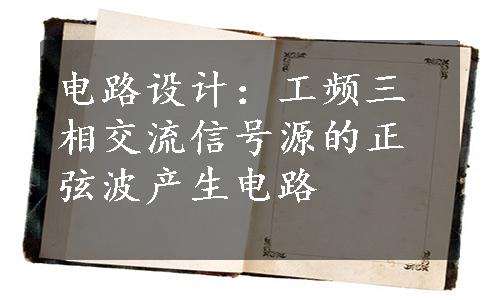 电路设计：工频三
相交流信号源的正
弦波产生电路